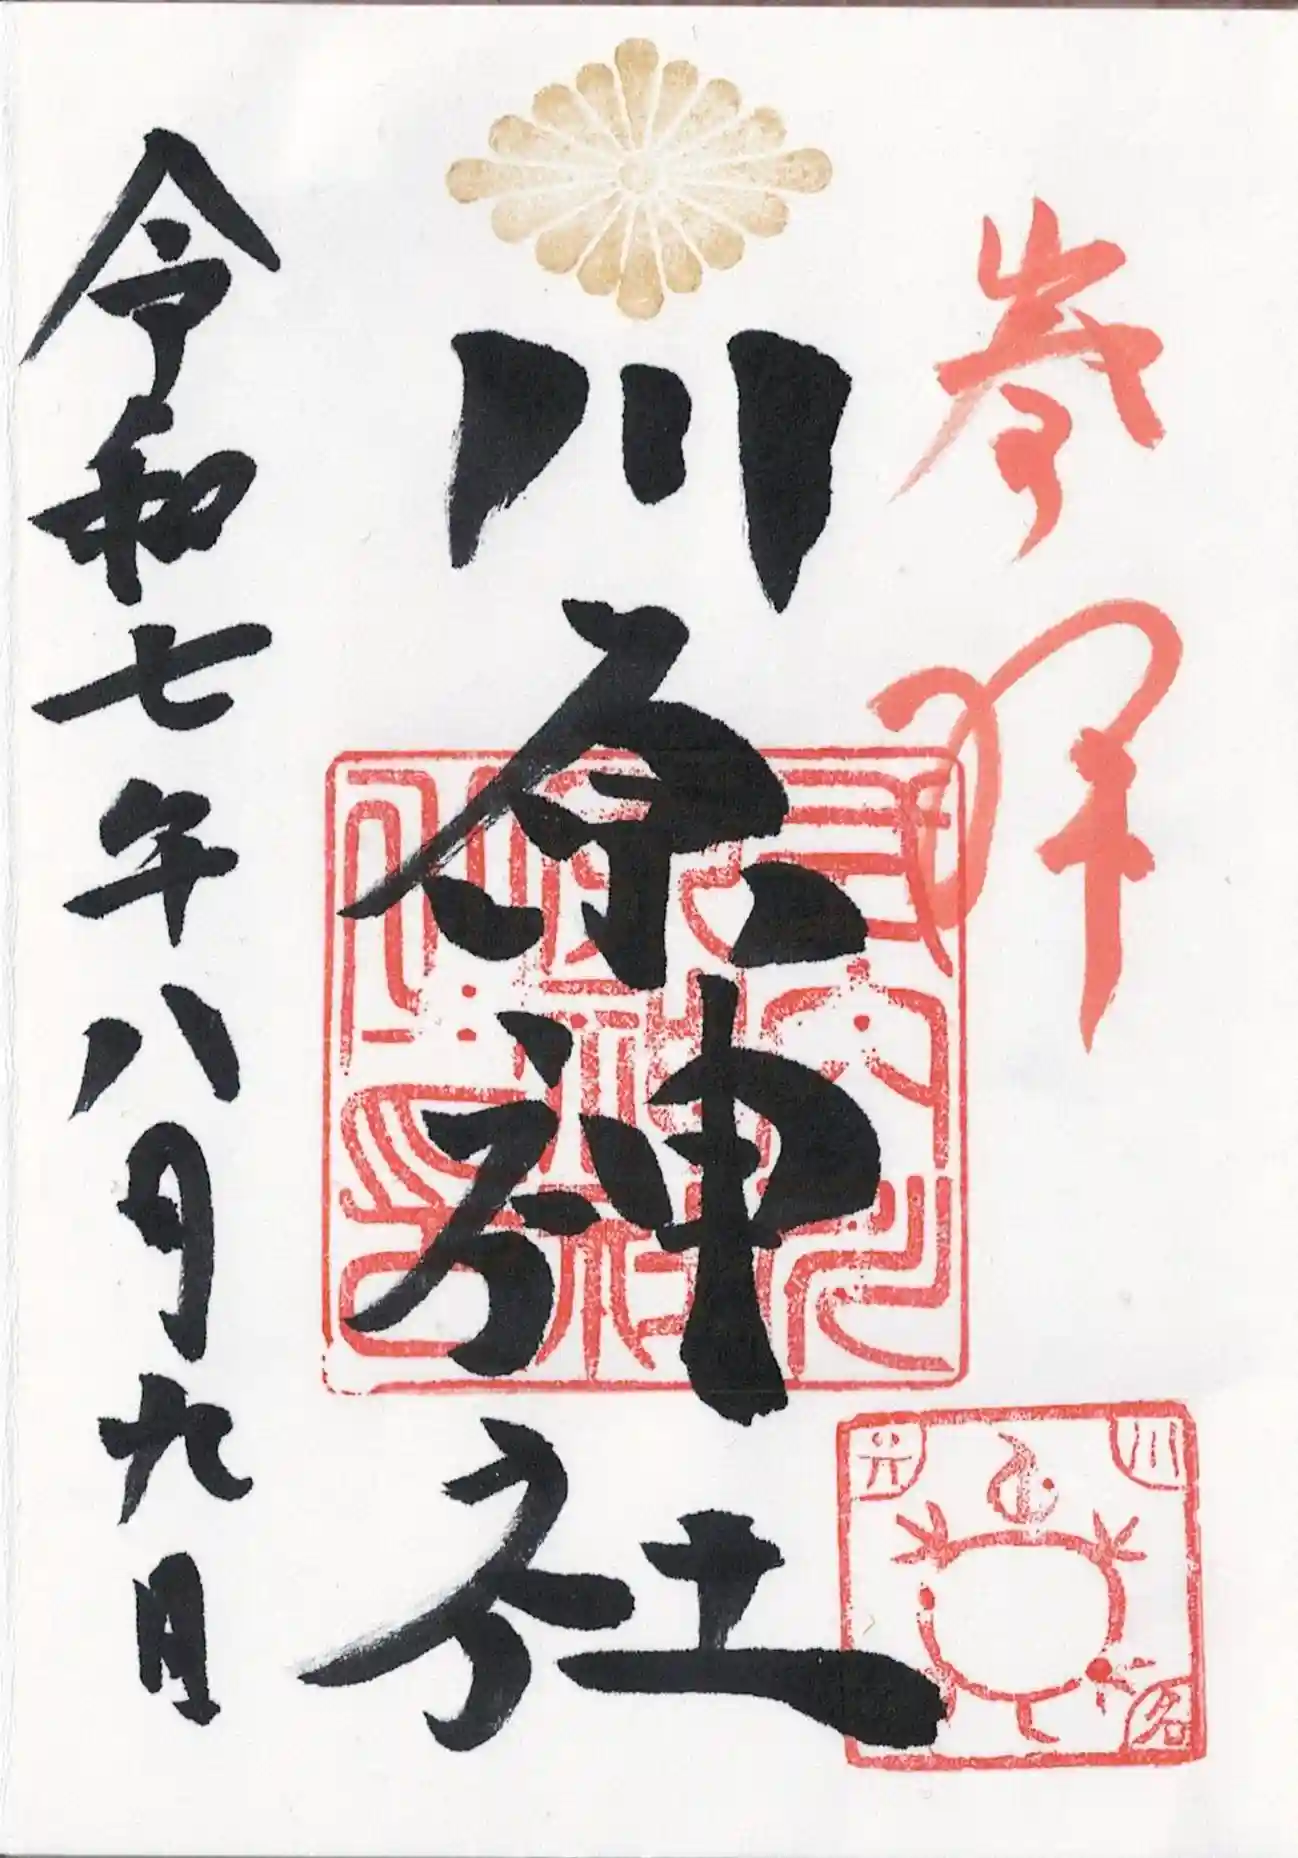 奉拝
川原神社
令和七年八月九日
川
名